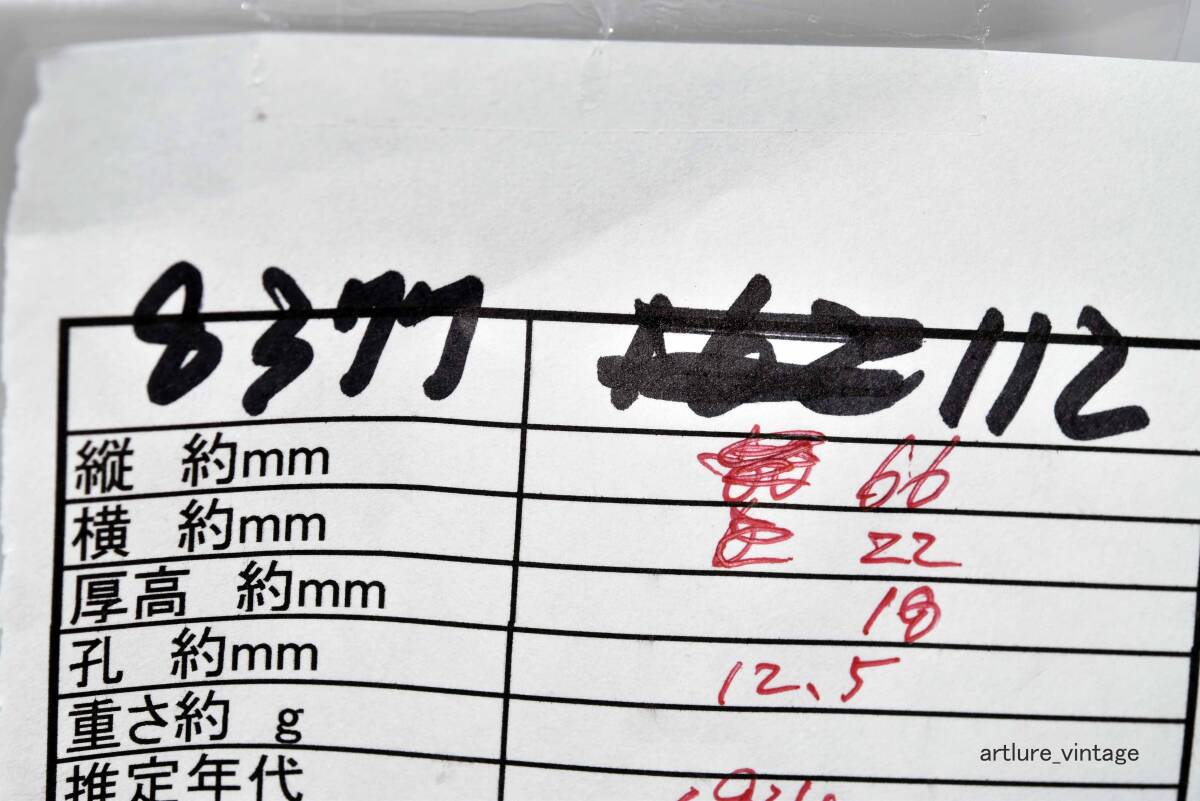 8377 112
縦 約mm 66
横 約mm 22
厚高 約mm 18
孔 約mm 12.5
重さ約 g
推定年代
artlure_vintage